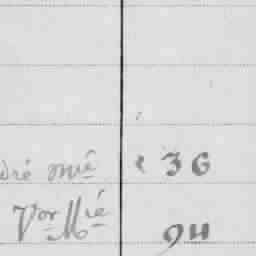 dré mié 36
Vor Mié 94